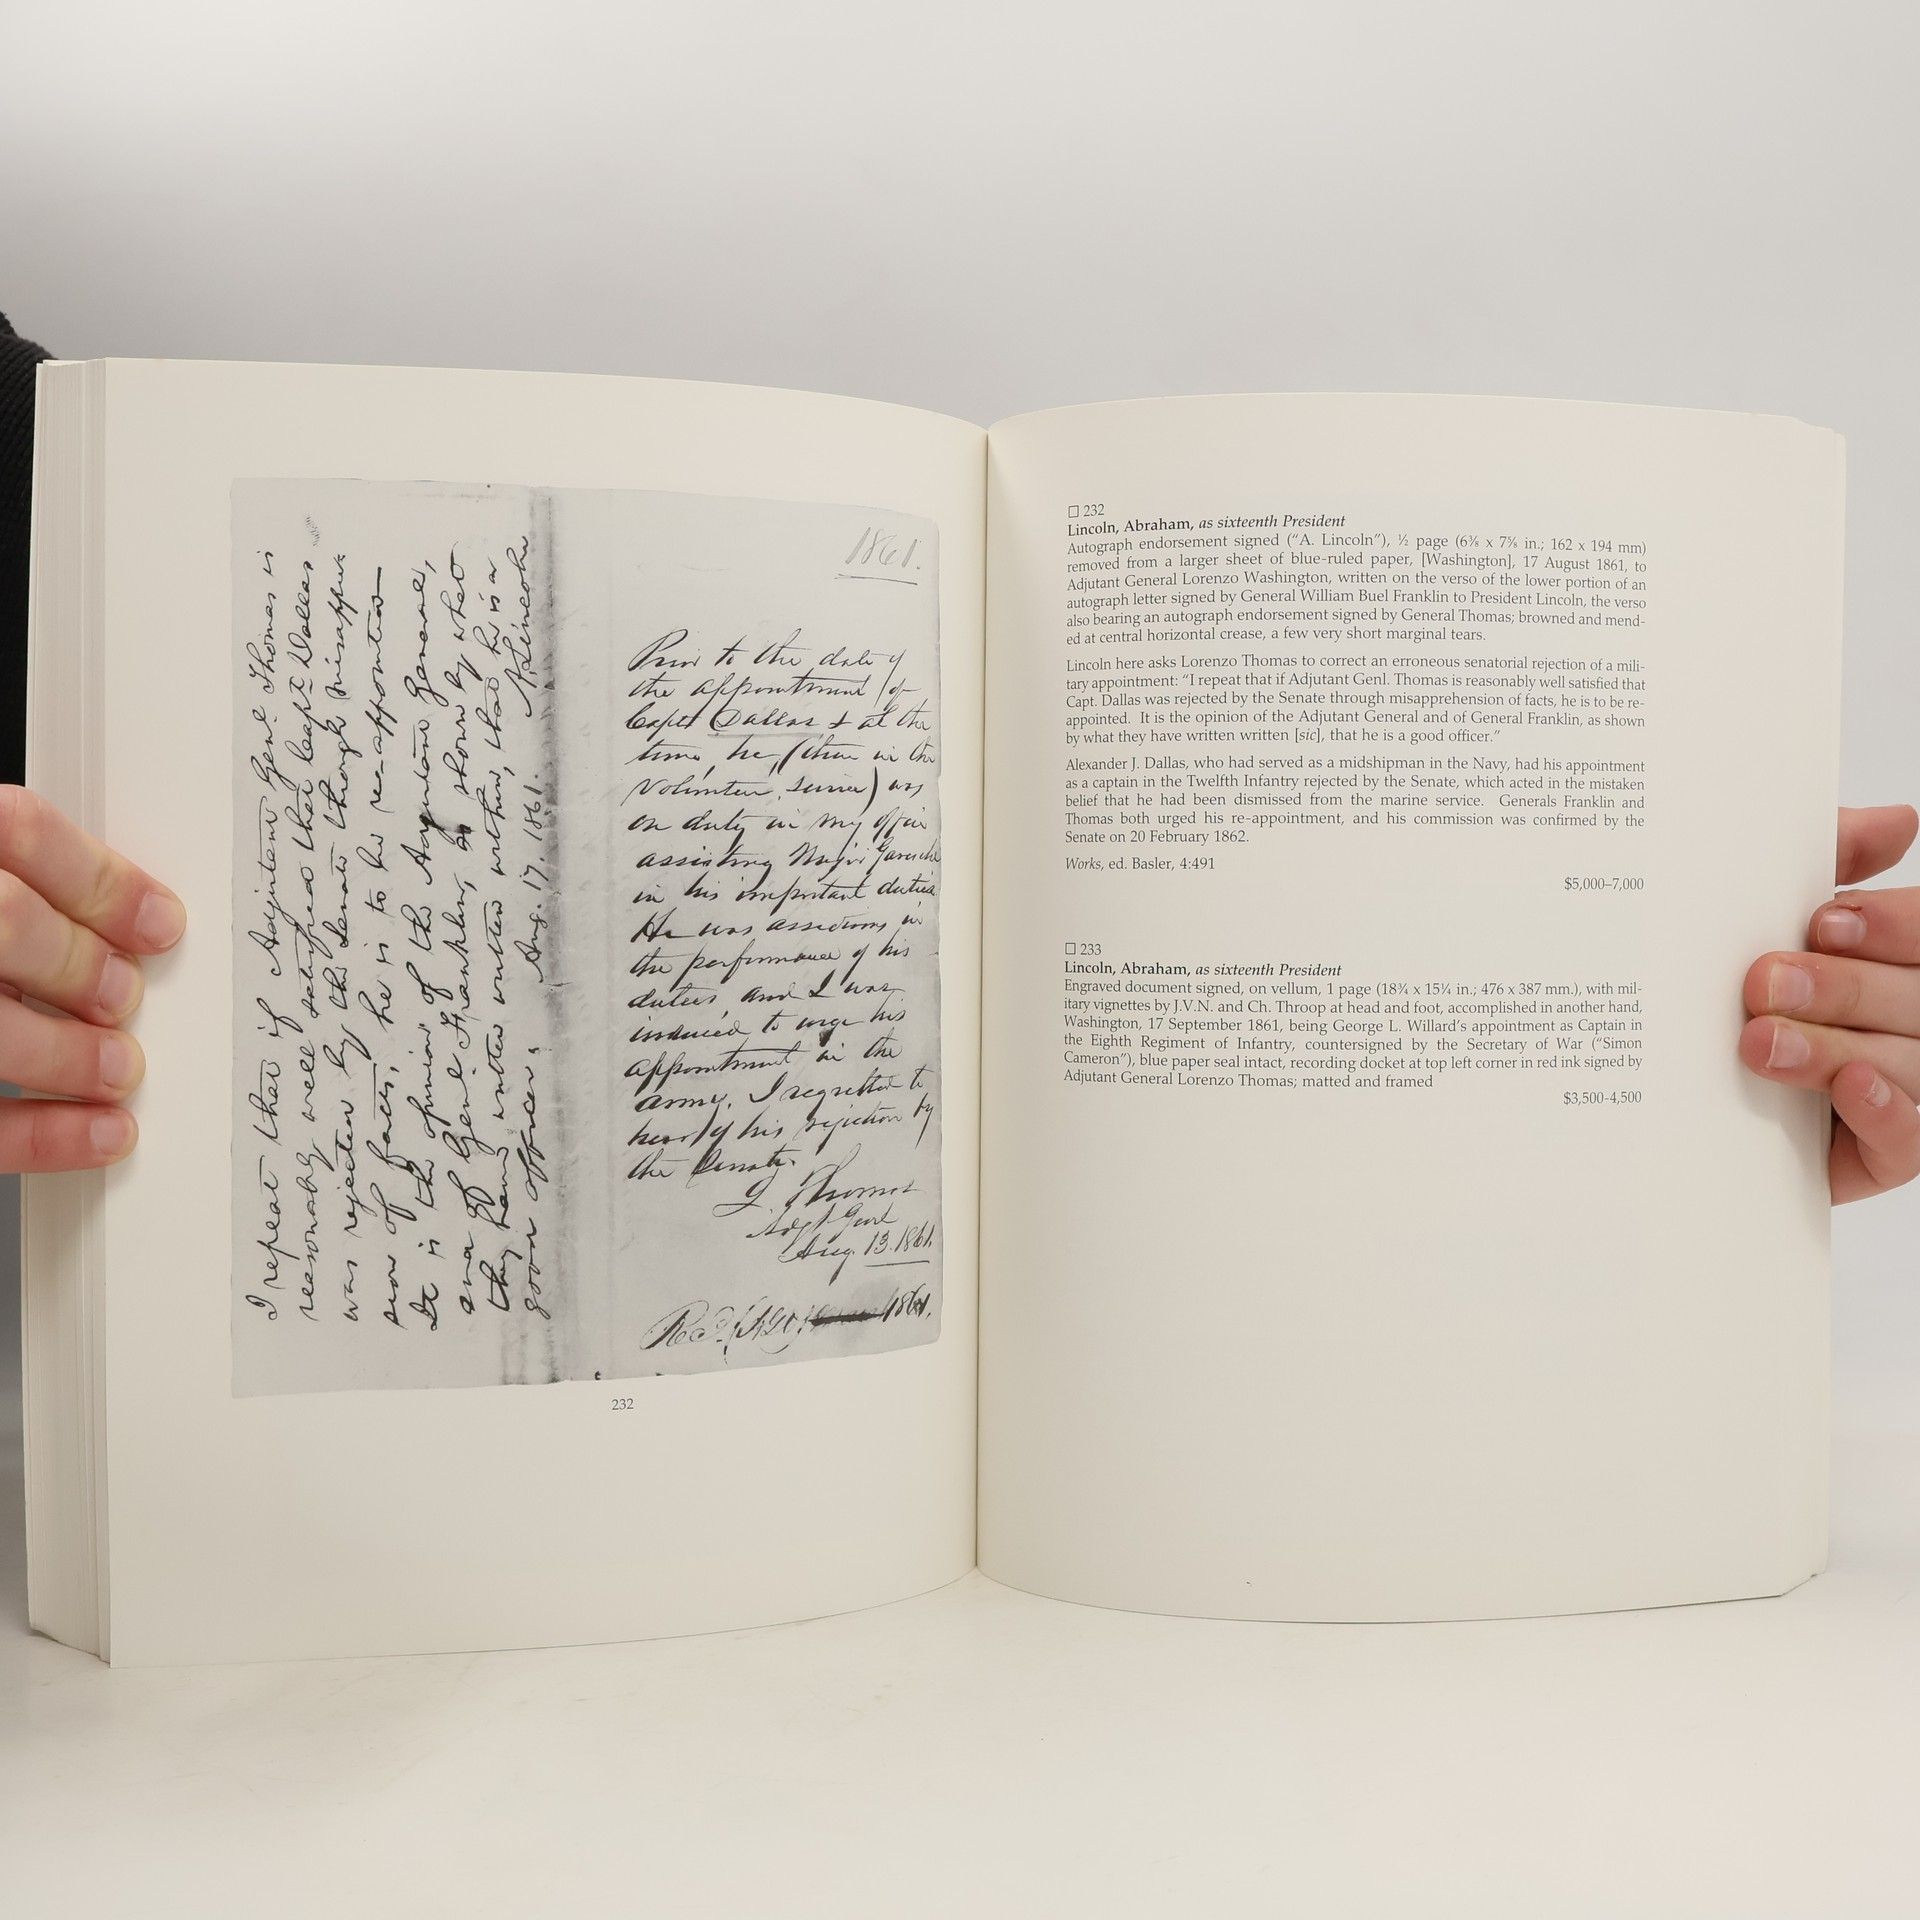 I repeat that if Adjutant Genl. Thomas is
reasonably well satisfied that Capt. Dallas
was rejected by the Senate through misapprehen-
sion of facts, he is to be re-appointed
It is the opinion of the Adjutant General,
and of Genl. Franklin, as shown by what
they have written written within, that he is a
good officer.
Aug. 17. 1861. A. Lincoln
1861.
Prior to the date of
the appointment of
Capt Dallas & at the
time, he, (then in the
Volunteer, service) was
on duty in my office
assisting Major Garesche
in his important duties.
He was assiduous in
the performance of his
duties and I was
induced to urge his
appointment in the
army. I regretted to
hear of his rejection by
the Senate.
L Thomas
Adjt Genl
Aug. 13. 1861.
Recd. (AGO) 1861.
232
□ 232
Lincoln, Abraham, as sixteenth President
Autograph endorsement signed (“A. Lincoln”), ½ page (6⅜ x 7⅝ in.; 162 x 194 mm)
removed from a larger sheet of blue-ruled paper, [Washington], 17 August 1861, to
Adjutant General Lorenzo Washington, written on the verso of the lower portion of an
autograph letter signed by General William Buel Franklin to President Lincoln, the verso
also bearing an autograph endorsement signed by General Thomas; browned and mend-
ed at central horizontal crease, a few very short marginal tears.
Lincoln here asks Lorenzo Thomas to correct an erroneous senatorial rejection of a mili-
tary appointment: “I repeat that if Adjutant Genl. Thomas is reasonably well satisfied that
Capt. Dallas was rejected by the Senate through misapprehension of facts, he is to be re-
appointed. It is the opinion of the Adjutant General and of General Franklin, as shown
by what they have written written [sic], that he is a good officer.”
Alexander J. Dallas, who had served as a midshipman in the Navy, had his appointment
as a captain in the Twelfth Infantry rejected by the Senate, which acted in the mistaken
belief that he had been dismissed from the marine service. Generals Franklin and
Thomas both urged his re-appointment, and his commission was confirmed by the
Senate on 20 February 1862.
Works, ed. Basler, 4:491
$5,000–7,000
□ 233
Lincoln, Abraham, as sixteenth President
Engraved document signed, on vellum, 1 page (18¾ x 15¼ in.; 476 x 387 mm.), with mil-
itary vignettes by J.V.N. and Ch. Throop at head and foot, accomplished in another hand,
Washington, 17 September 1861, being George L. Willard’s appointment as Captain in
the Eighth Regiment of Infantry, countersigned by the Secretary of War (“Simon
Cameron”), blue paper seal intact, recording docket at top left corner in red ink signed by
Adjutant General Lorenzo Thomas; matted and framed
$3,500-4,500